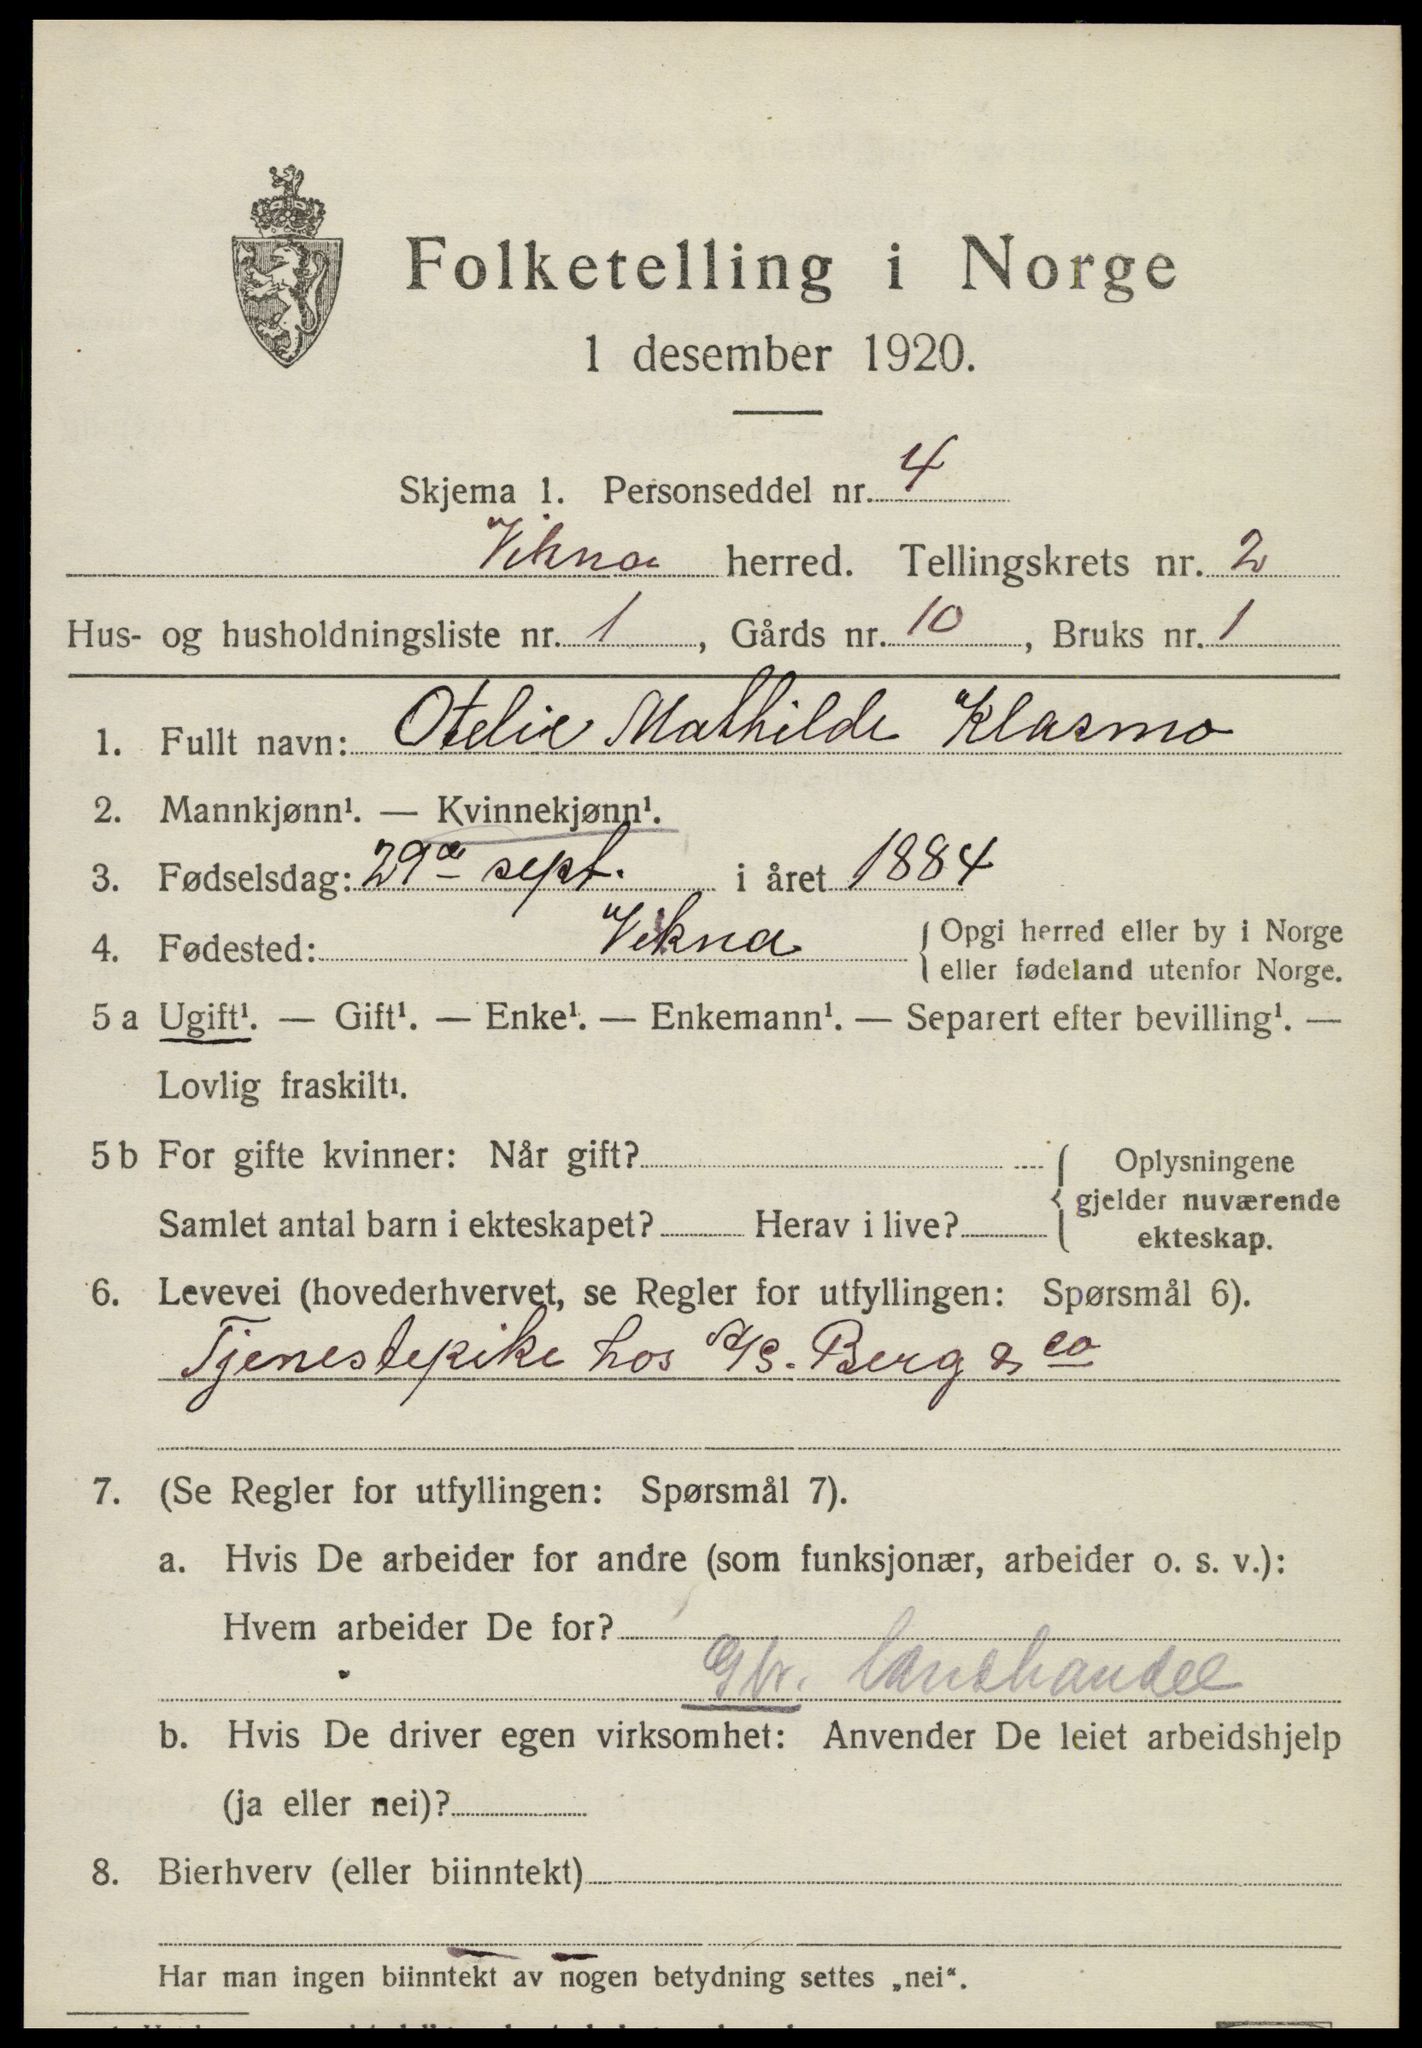 Folketelling i Norge
1 desember 1920.
Skjema 1. Personseddel nr. 4
Vikna herred. Tellingskrets nr. 2
Hus- og husholdningsliste nr. 1, Gårds nr. 10, Bruks nr. 1
1. Fullt navn: Otelie Mathilde Klasmo
2. Mannkjønn¹. — Kvinnekjønn¹.
3. Fødselsdag: 29de sept. i året 1884
4. Fødested: Vikna { Opgi herred eller by i Norge
eller fødeland utenfor Norge.
5 a Ugift¹. — Gift¹. — Enke¹. — Enkemann¹. — Separert efter bevilling¹. —
Lovlig fraskilt¹.
5 b For gifte kvinner: Når gift? { Oplysningene
gjelder nuværende
Samlet antal barn i ekteskapet? Herav i live?
ekteskap.
6. Levevei (hovederhvervet, se Regler for utfyllingen: Spørsmål 6).
Tjenestepike hos A/S. Berg & co
7. (Se Regler for utfyllingen: Spørsmål 7).
a. Hvis De arbeider for andre (som funksjonær, arbeider o. s. v.):
Hvem arbeider De for?
Gbr. Landhandel
b. Hvis De driver egen virksomhet: Anvender De leiet arbeidshjelp
(ja eller nei)?
8. Bierhverv (eller biinntekt)
Har man ingen biinntekt av nogen betydning settes „nei“.